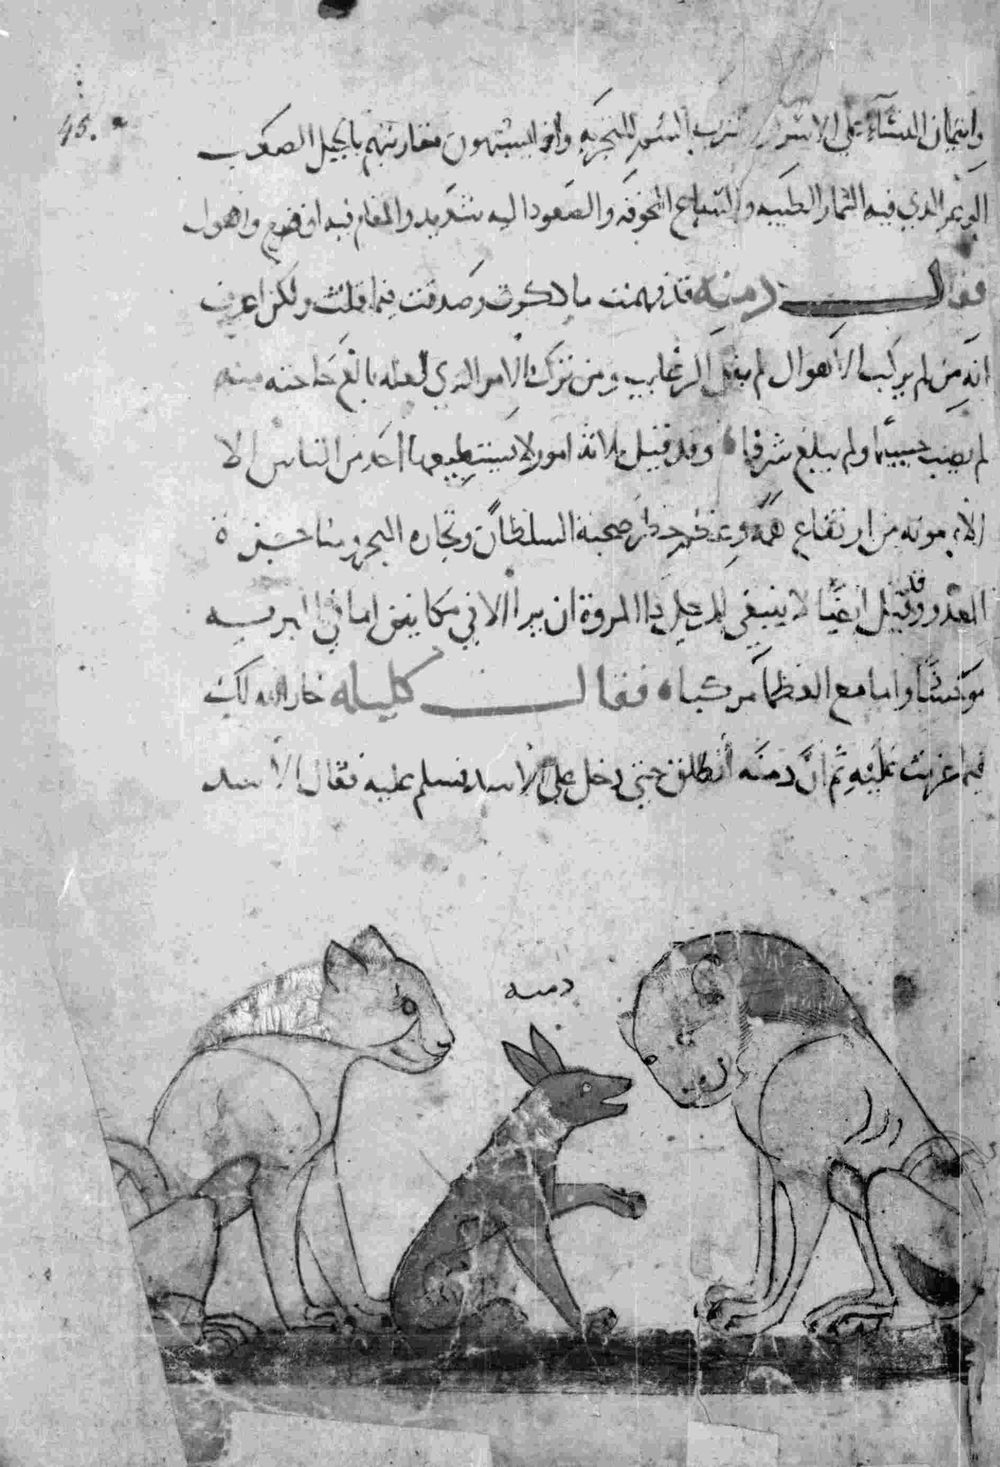 45.
وايتمان النساء على الاسرار وشرب السم للتجربه وانما يشبهون مقاربتهم بالجبل الصعب
الوعر الذي فيه الثمار الطيبه والسباع المخوفه والصعود اليه شديد والمقام فيه افضع واهول
فقال دمنه قد فهمت ما ذكرت وصدقت فيما قلت ولكن اعرف
انه من لم يركب الاهوال لم ينل الرغايب ومن ترك الامر الذي لعله بالغ حاجته منه
لم يصب جسيما ولم يبلغ شرفا وقد قيل ثلاثة امور لا يستطيعها احد من الناس الا
الا بمونه من ارتفاع همة وعظم خطر صحبة السلطان وتجاره البحر ومناجزة
العدو وقد قيل ايضا لا ينبغي للرجل ذا المروة ان يرا الا في مكانين اما في البريه
موحشا واما مع العظما مرشبا فقال كليله خار الله لك
فيما عزمت عليه ثم ان دمنه انطلق حتى دخل على الاسد فسلم عليه فقال الاسد
دمنه